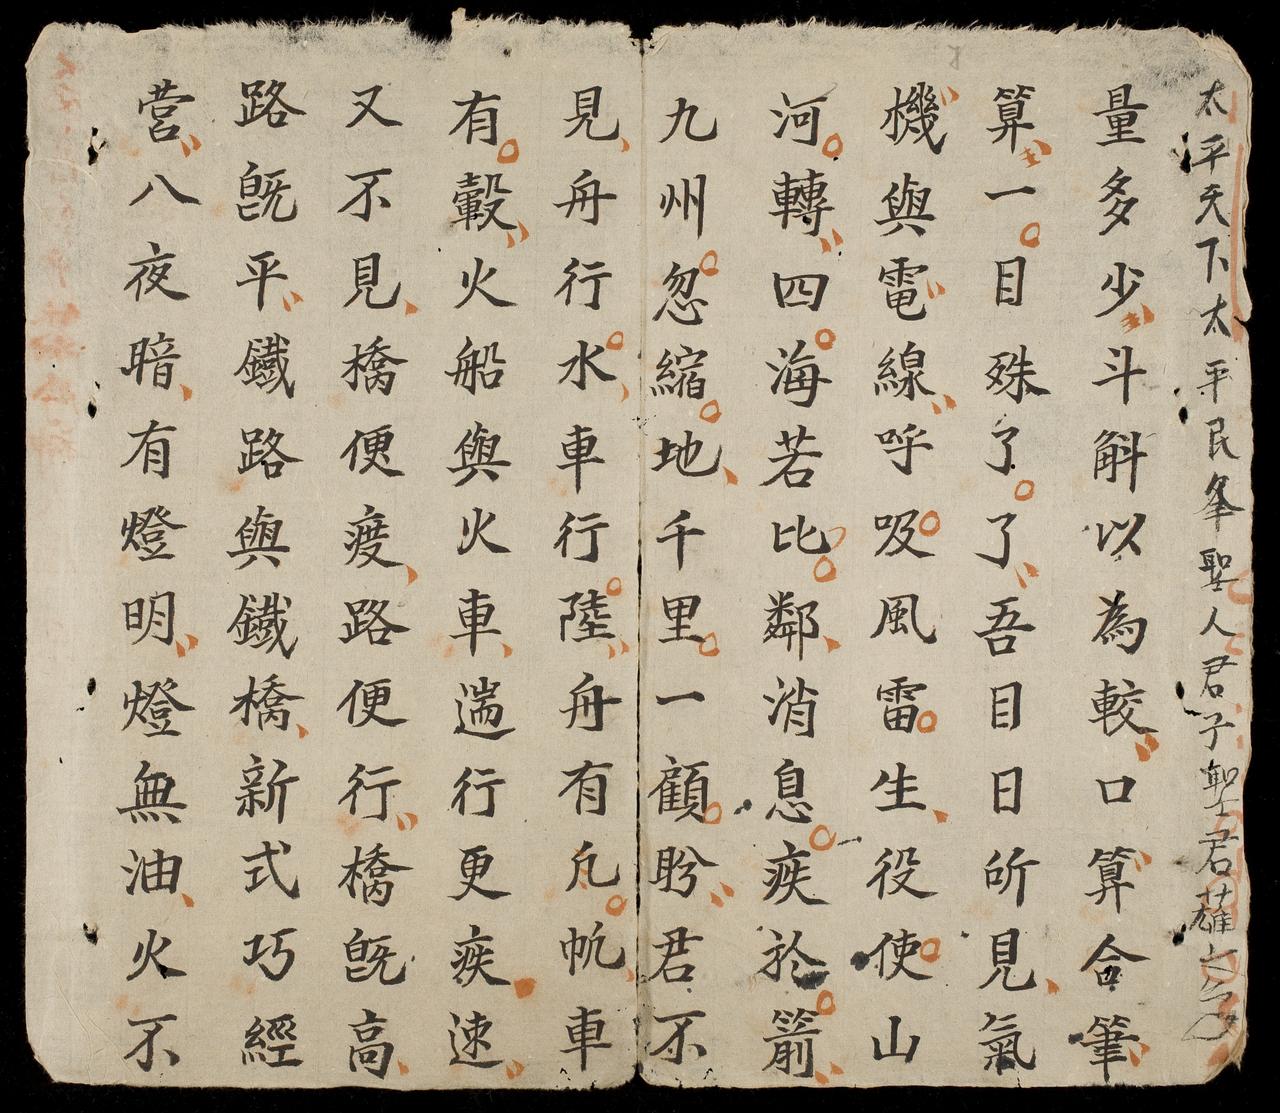 太平天下太平民峯聖人君子聖君
量多少斗斛以為較口算合筆
算一目殊了了吾目日所見氣
機與電線呼吸風雷生役使山
河轉四海若比鄰消息疾於箭
九州忽縮地千里一顧盼君不
見舟行水車行陸舟有凢帆車
有轂火船與火車遄行更疾速
又不見橋便度路便行橋旣高
路旣平鐵路與鐵橋新式巧經
營八夜暗有燈明燈無油火不